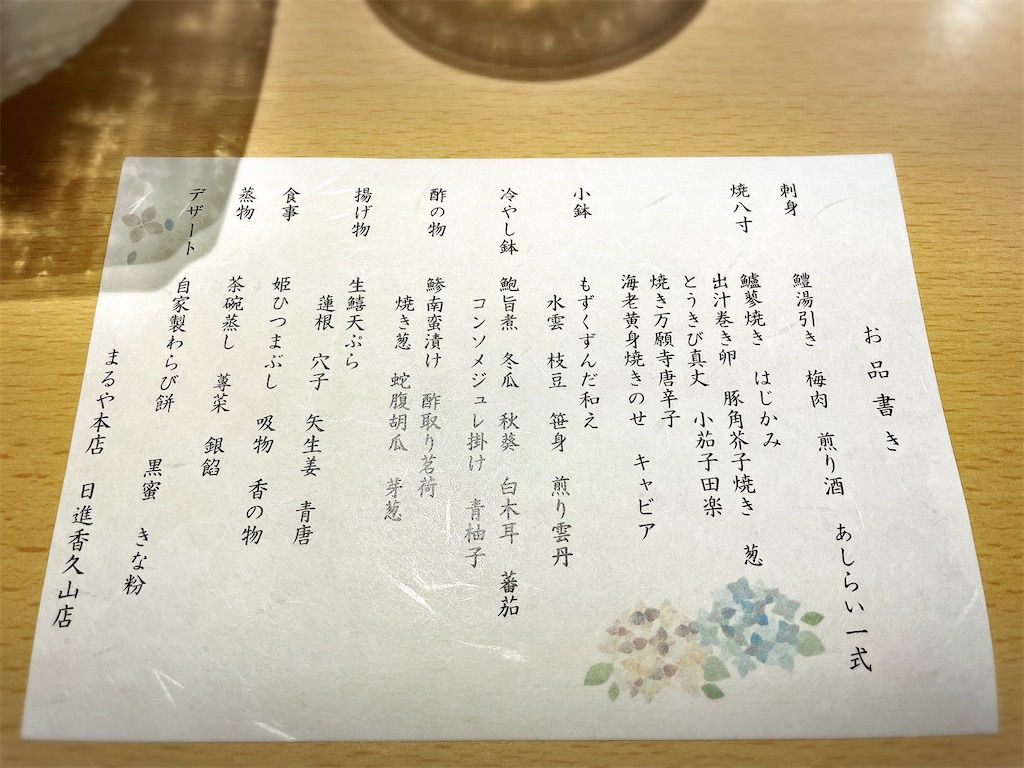 お品書き
刺身 鱧湯引き 梅肉 煎り酒 あしらい一式
焼八寸 鱸蓼焼き はじかみ
出汁巻き卵 豚角芥子焼き 葱
とうきび真丈 小茄子田楽
焼き万願寺唐辛子
海老黄身焼きのせ キャビア
小鉢 もずくずんだ和え
水雲 枝豆 笹身 煎り雲丹
冷やし鉢 鮑旨煮 冬瓜 秋葵 白木耳 蕃茄
コンソメジュレ掛け 青柚子
酢の物 鯵南蛮漬け 酢取り茗荷
焼き葱 蛇腹胡瓜 芽葱
揚げ物 生鱚天ぷら
蓮根 穴子 矢生姜 青唐
食事 姫ひつまぶし 吸物 香の物
蒸物 茶碗蒸し 蓴菜 銀餡
デザート 自家製わらび餅 黒蜜 きな粉
まるや本店 日進香久山店